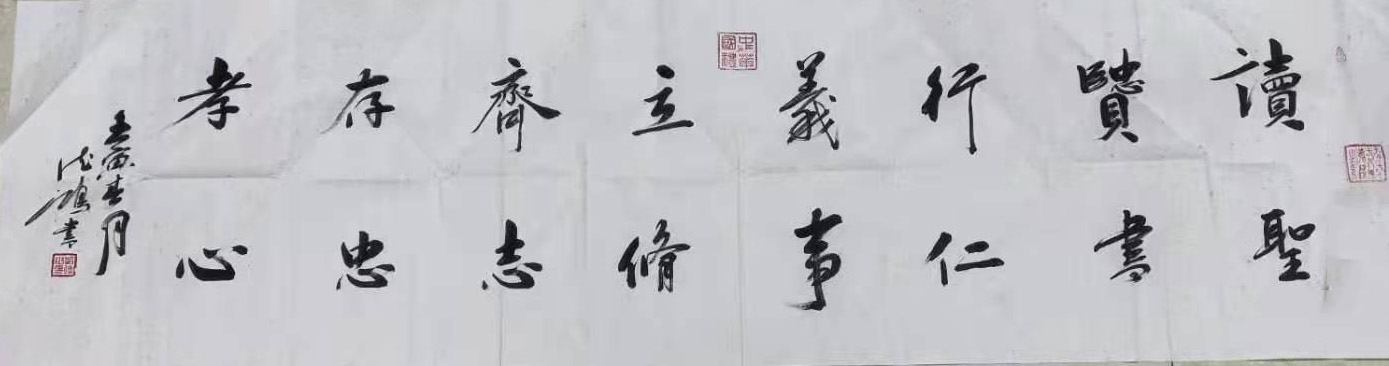 讀聖
贒書
行仁
義事
立脩
齊志
存忠
孝心
壬寅春月
書